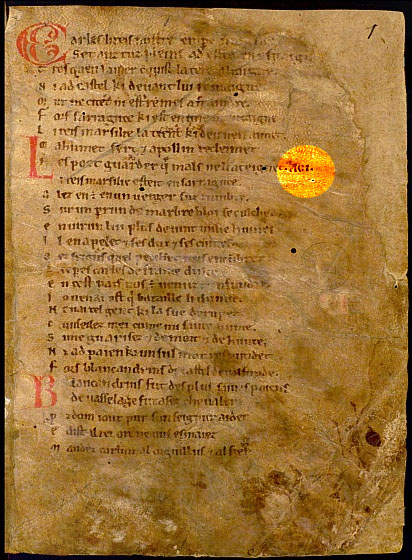 Carles li reis nostre emper
Set anz tuz pleins ad estet en espaigne
Tresquen la mer cunquist la tere altaigne
N i ad castel ki deuant lui remaigne
M ur ne citet ni est remes a fraindre
F ors sarraguce ki est en une muntaigne
L i reis marsilie la tient ki deu nen aimet
M ahumet sert e apollin recleimet
N es poet guarder q mals ne li ateignet. AOI.
L i reis marsilie esteit en sarraguce
A lez en est en un uerger suz lumbre
S ur un perrun de marbre bloi se culchet
E nuirun lui plus de uint milie humes
I l en apelet e ses dux e ses cuntes
seignurs quel pecchet nus encumbret
L i carles de france dulce
E n cest pais nos est uenuz cunfundre
I o nen ai ost q bataille li dunne
N ai tel gent ki la sue derumpet
C unseilez mei cume mi saiue hume
S i me guarisez e de mort e de hunte
N i ad paien ki un sul mot respundet
F ors blancandrins de castel de ualfunde
B lancandrins fut des plus saiues paiens
de uasselage fut asez cheualer
P rozdom i out pur sun seignur aider
E dist al rei or ne uus esmaiez
M andez carlun al orguillus e al fier